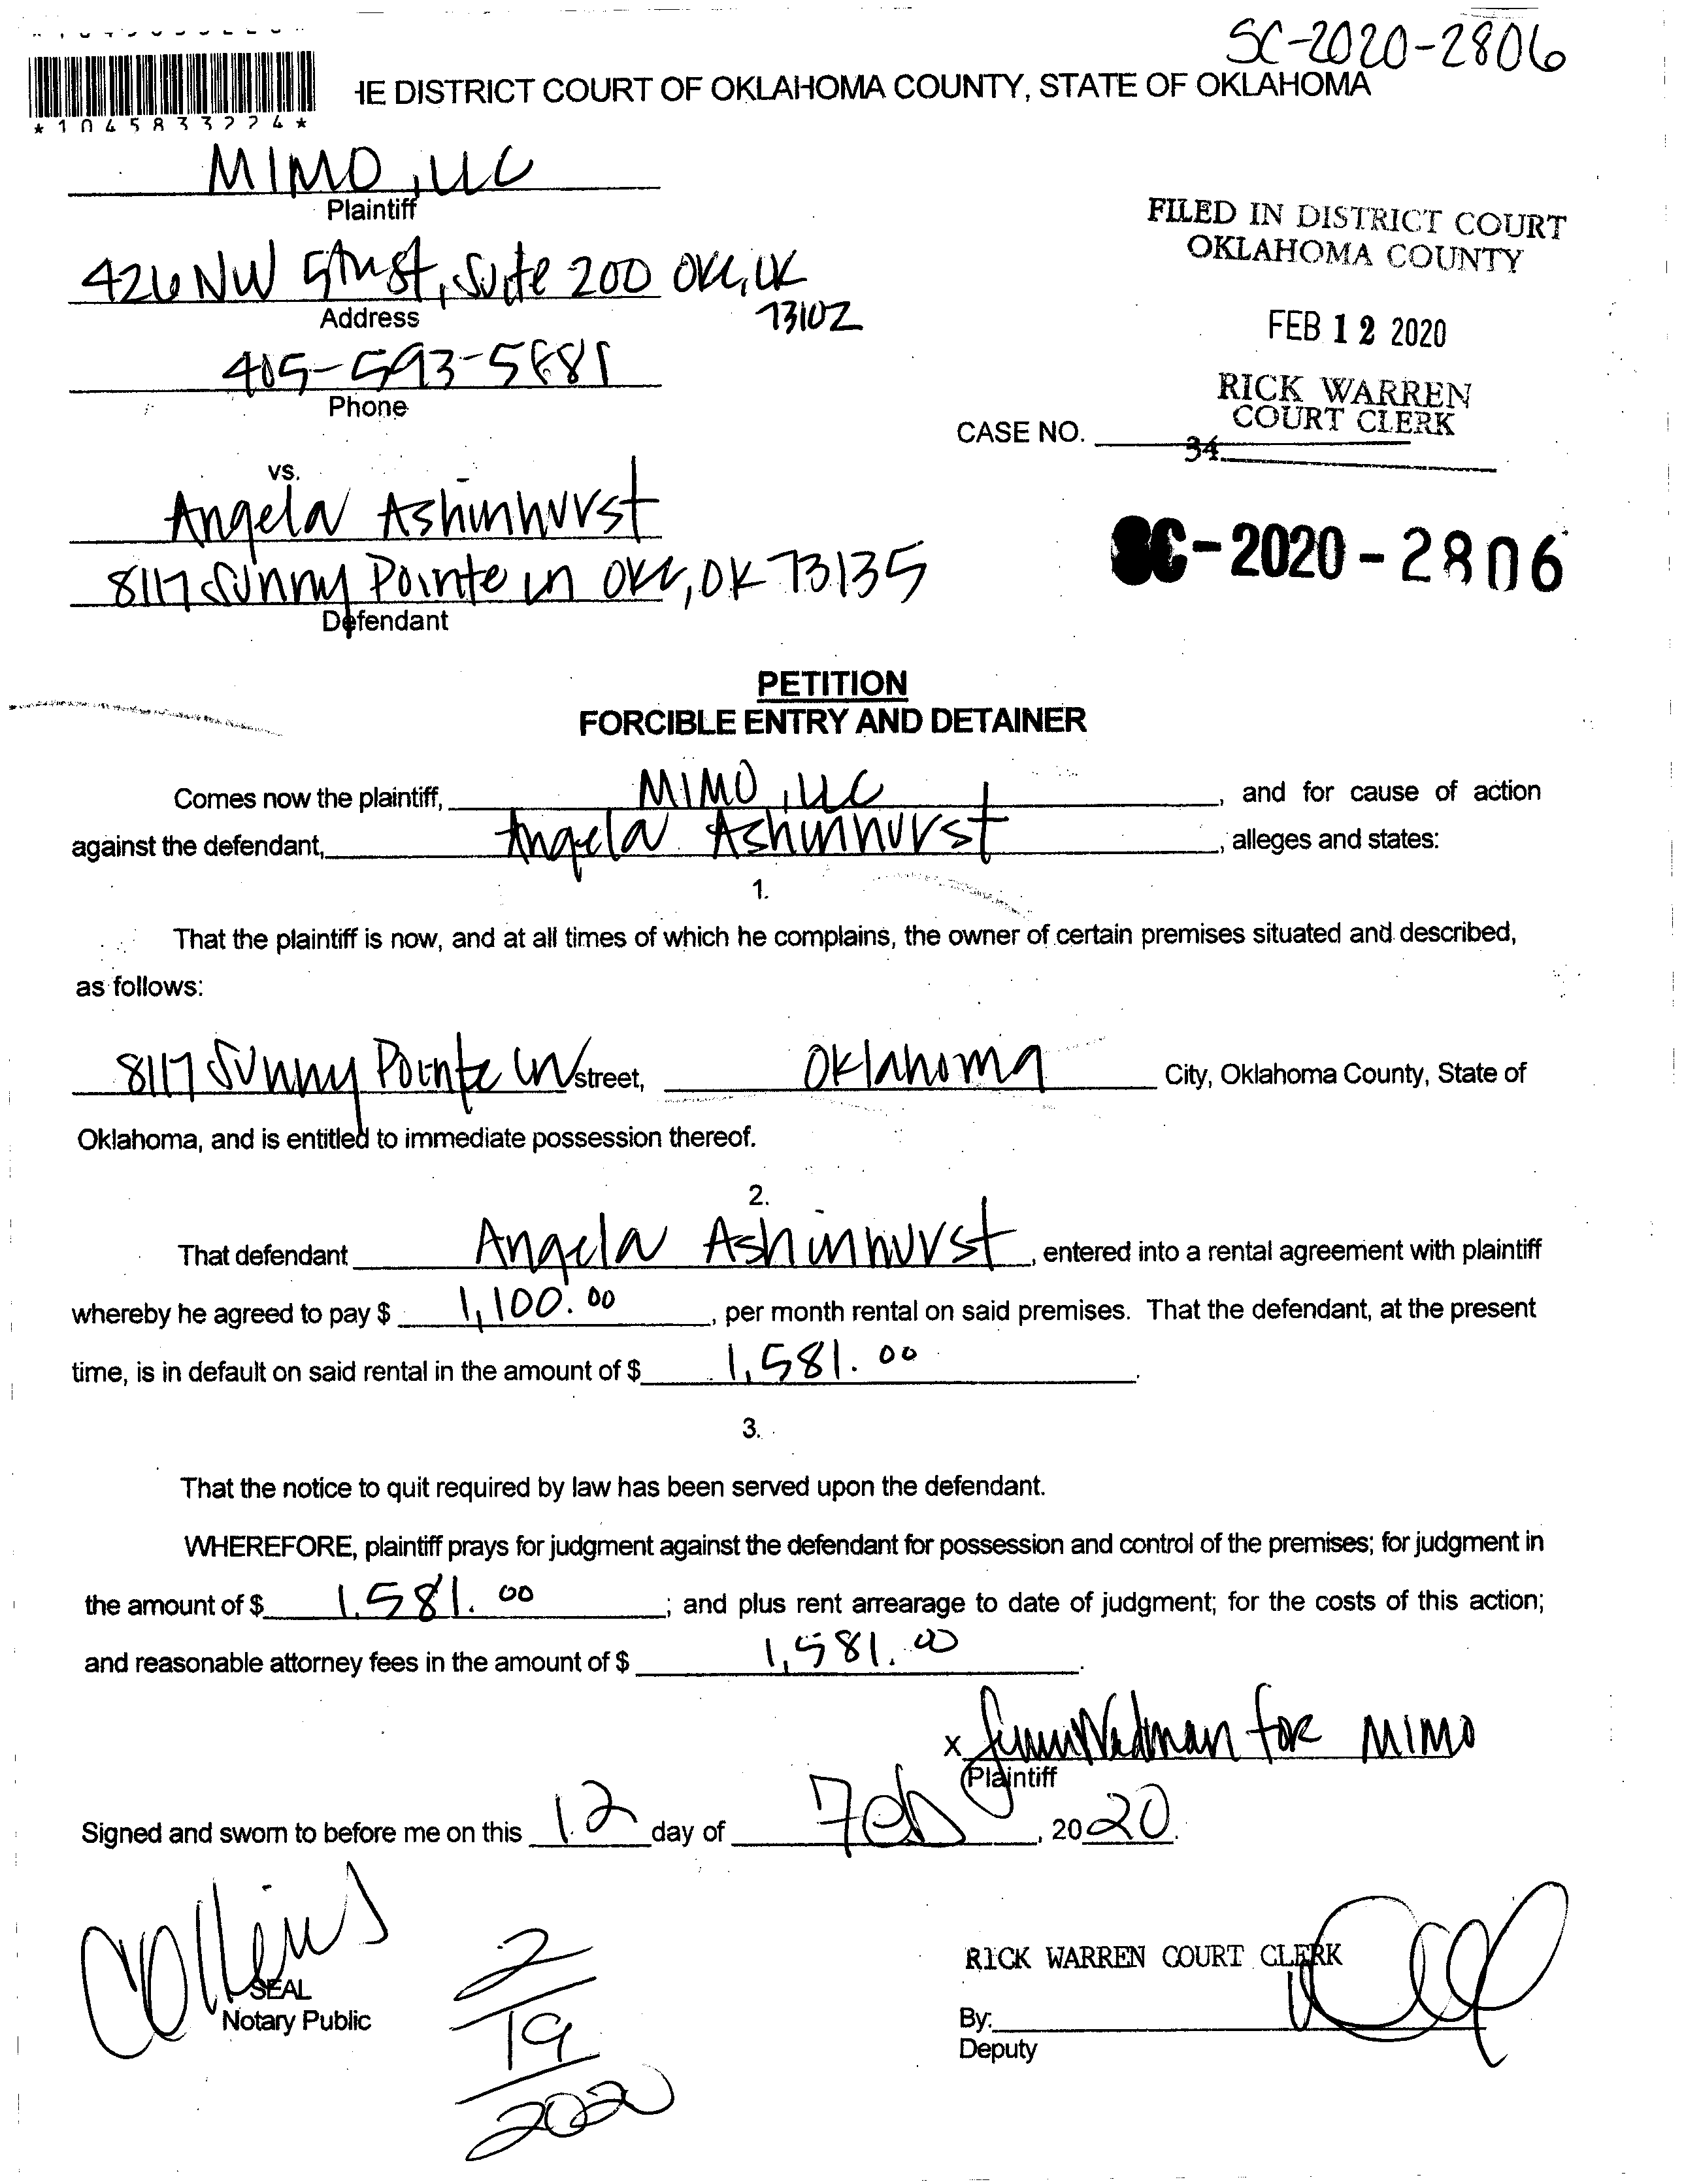 SC-2020-2806
*1045833224*
HE DISTRICT COURT OF OKLAHOMA COUNTY, STATE OF OKLAHOMA
MIMO, LLC
Plaintiff
FILED IN DISTRICT COURT
OKLAHOMA COUNTY
426 NW 5th St, Suite 200 OKC, OK
73102
Address
FEB 12 2020
405-593-5881
Phone
RICK WARREN
COURT CLERK
CASE NO.
34
vs.
Angela Ashinhurst
8117 Sunny Pointe Ln OKC, OK 73135
Defendant
SC-2020-2806
PETITION
FORCIBLE ENTRY AND DETAINER
Comes now the plaintiff, MIMO, LLC, and for cause of action
against the defendant, Angela Ashinhurst, alleges and states:
1.
That the plaintiff is now, and at all times of which he complains, the owner of certain premises situated and described,
as follows:
8117 Sunny Pointe Ln street, Oklahoma City, Oklahoma County, State of
Oklahoma, and is entitled to immediate possession thereof.
2.
That defendant Angela Ashinhurst, entered into a rental agreement with plaintiff
whereby he agreed to pay $ 1,100.00, per month rental on said premises. That the defendant, at the present
time, is in default on said rental in the amount of $ 1,581.00.
3.
That the notice to quit required by law has been served upon the defendant.
WHEREFORE, plaintiff prays for judgment against the defendant for possession and control of the premises; for judgment in
the amount of $ 1,581.00; and plus rent arrearage to date of judgment; for the costs of this action;
and reasonable attorney fees in the amount of $ 1,581.00.
x for MIMO
Plaintiff
Signed and sworn to before me on this 12 day of Feb, 2020.
Collins
SEAL
Notary Public
2
19
2020
RICK WARREN COURT CLERK
By:
Deputy